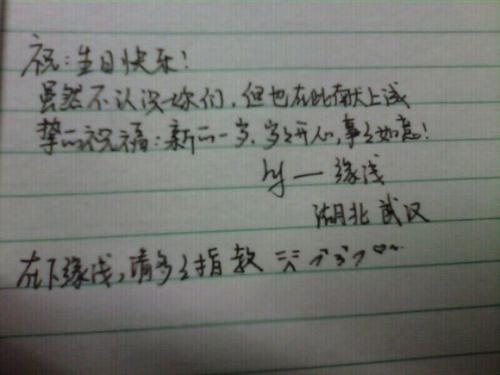 祝:生日快乐!
虽然不认识你们,但也在此献上诚
挚的祝福:新的一岁,岁岁开心,事事如意!
by — 缘浅
湖北 武汉
在下缘浅,请多多指教